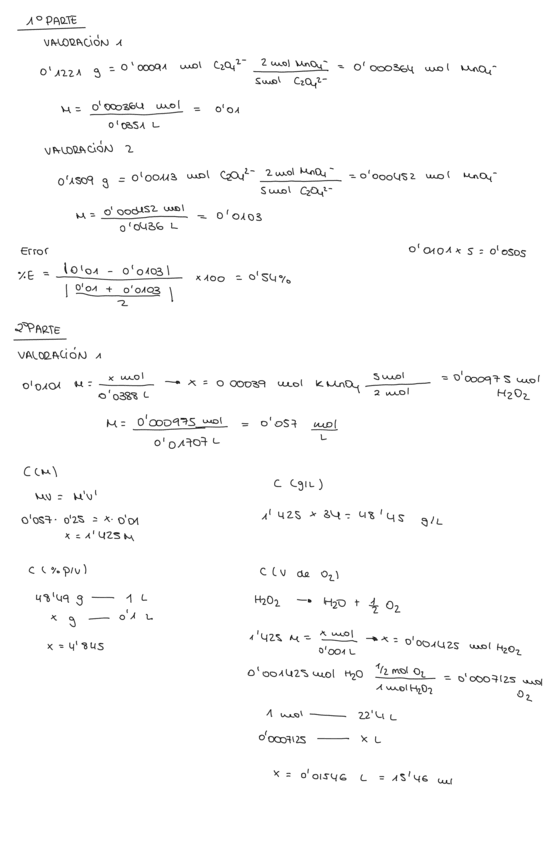 1º PARTE
VALORACIÓN 1
0'1221 g = 0'00091 mol C₂O₄²⁻ 2 mol MnO₄⁻ / 5 mol C₂O₄²⁻ = 0'000364 mol MnO₄⁻
M = 0'000364 mol / 0'0351 L = 0'01
VALORACIÓN 2
0'1509 g = 0'00113 mol C₂O₄²⁻ 2 mol MnO₄⁻ / 5 mol C₂O₄²⁻ = 0'000452 mol MnO₄⁻
M = 0'000452 mol / 0'0436 L = 0'0103
Error
0'0101 x 5 = 0'0505
%E = |0'01 - 0'0103| / |0'01 + 0'0103 / 2| x 100 = 0'54%
2ºPARTE
VALORACIÓN 1
0'0101 M = x mol / 0'0388 L → x = 0'00039 mol KMnO₄ 5 mol / 2 mol = 0'000975 mol H₂O₂
M = 0'000975 mol / 0'01707 L = 0'057 mol / L
C (M)
MV = M'V'
0'057 · 0'25 = x · 0'01
x = 1'425 M
C (g/L)
1'425 x 34 = 48'45 g/L
C (% p/v)
48'49 g — 1 L
x g — 0'1 L
x = 4'845
C (V de O₂)
H₂O₂ → H₂O + 1/2 O₂
1'425 M = x mol / 0'001 L → x = 0'001425 mol H₂O₂
0'001425 mol H₂O 1/2 mol O₂ / 1 mol H₂O₂ = 0'0007125 mol O₂
1 mol — 22'4 L
0'0007125 — x L
x = 0'01546 L = 15'46 ml